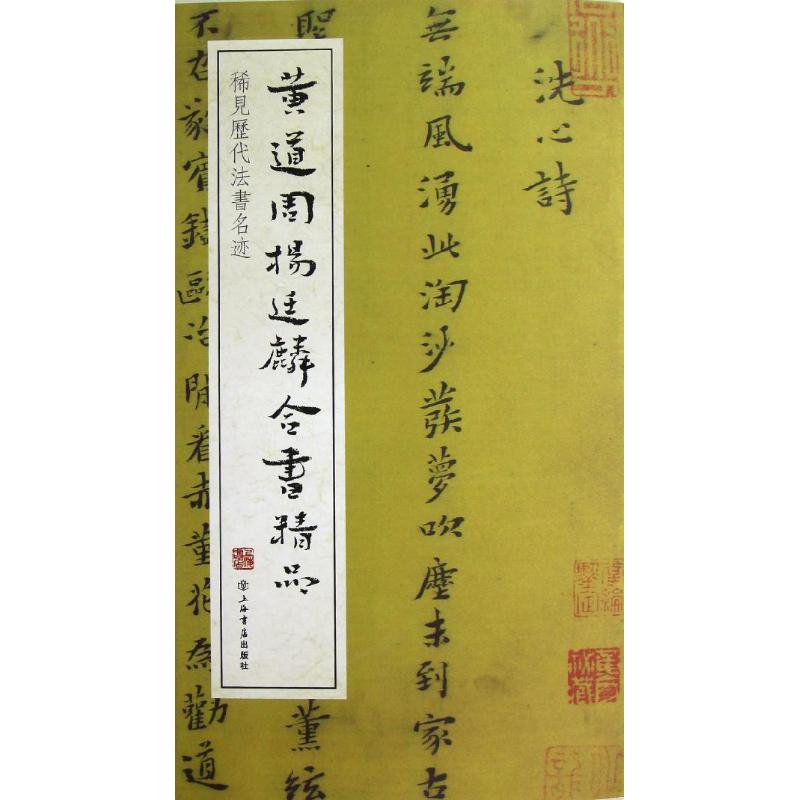 洗心詩
無端風湧此淘沙蔟夢吹塵未到家古
薰絃
不在
寶
歐冶閒看赤堇花為勸道
黄道周楊廷麟合書精品
稀見歷代法書名迹
上海書店出版社